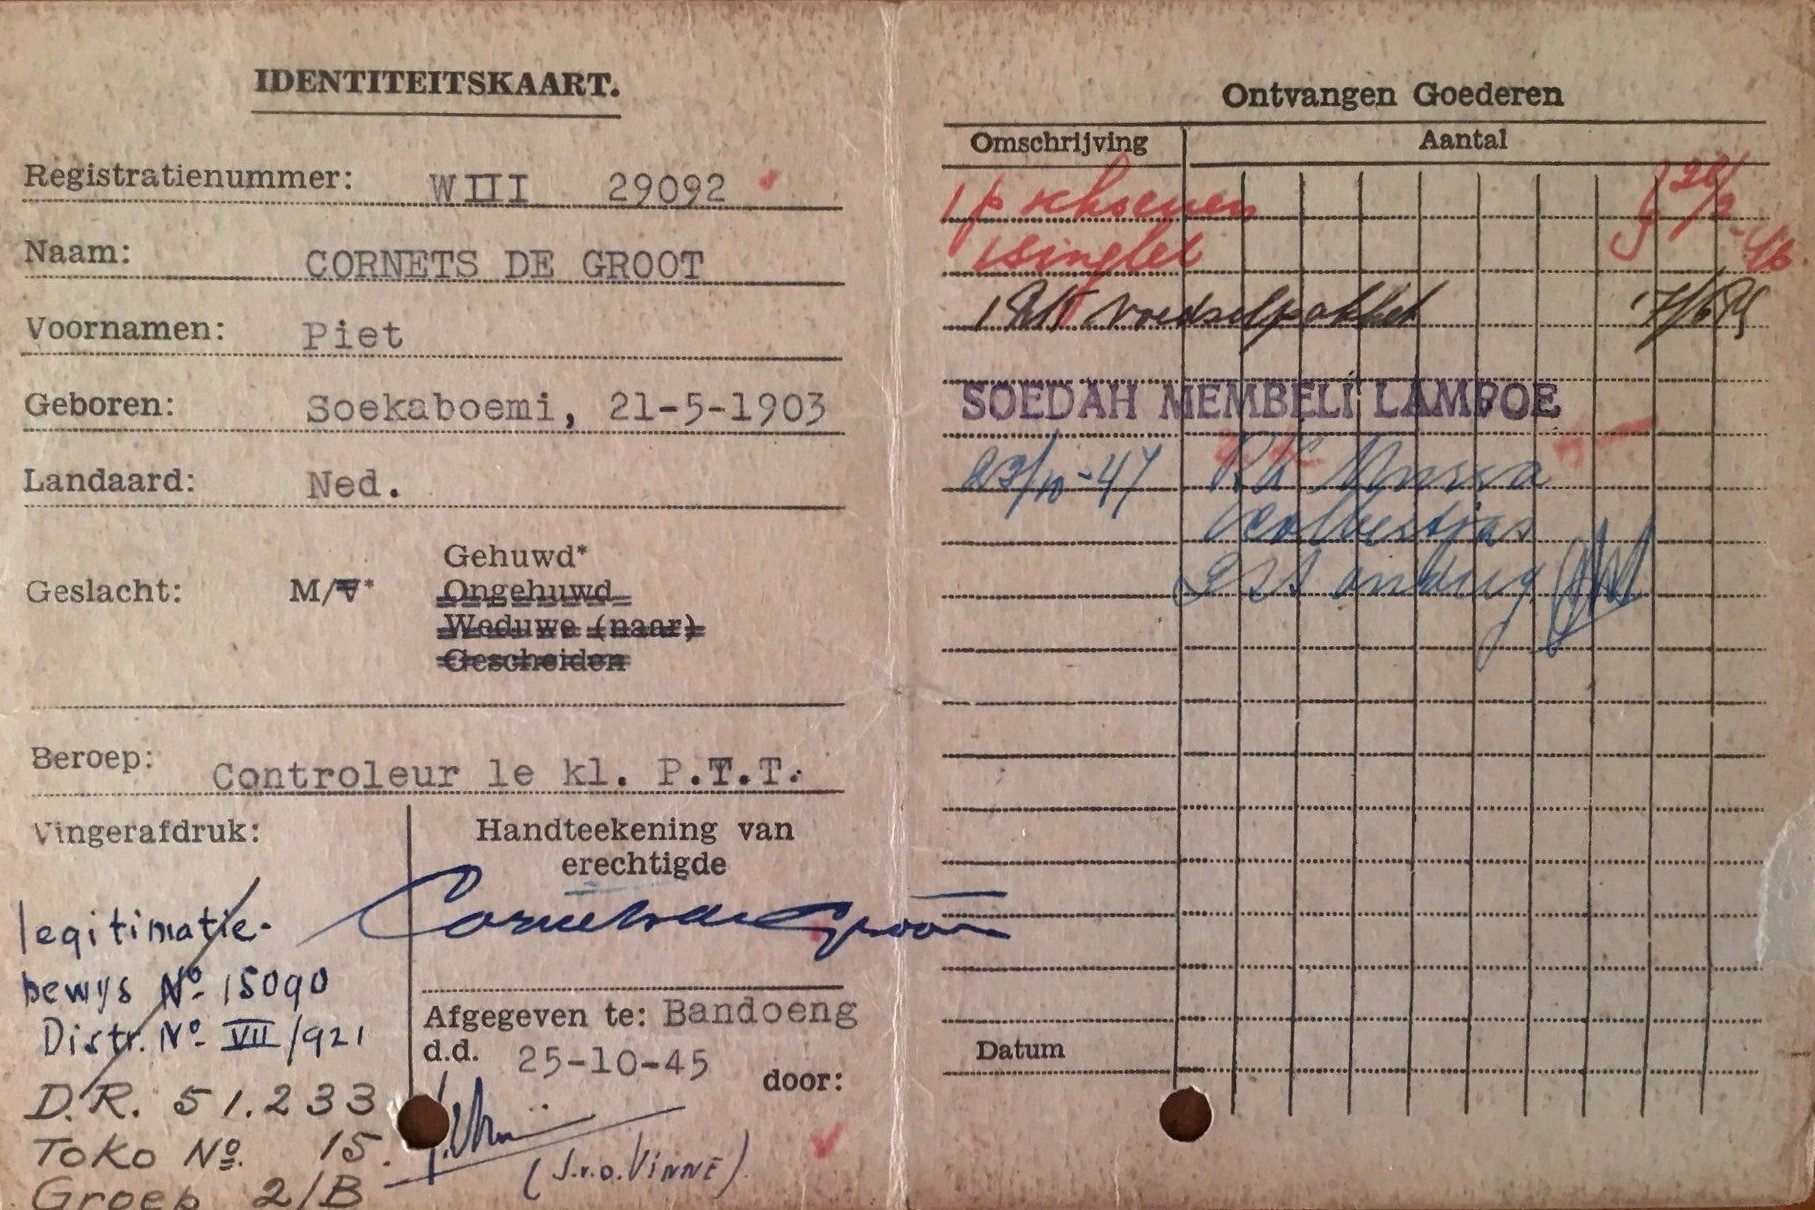 IDENTITEITSKAART.
Registratienummer: WIII 29092
Naam: CORNETS DE GROOT
Voornamen: Piet
Geboren: Soekaboemi, 21-5-1903
Landaard: Ned.
Geslacht: M/V* Gehuwd*
Ongehuwd
Weduwe (naar)
Gescheiden
Beroep: Controleur 1e kl. P.T.T.
Vingerafdruk:
legitimatie-
bewijs No 15090
Distr. No VII/921
D.R. 51.233
Toko No. 15.
Groep 2/B
Handteekening van
erechtigde
Cornets de Groot
Afgegeven te: Bandoeng
d.d. 25-10-45 door:
(J.v.d. VINNE)
Ontvangen Goederen
Omschrijving Aantal
1 p schoenen 28/2
1 singlet -46.
1 voedselpakket
SOEDAH MEMBELI LAMPOE
23/10-47
Colbertjas
Datum